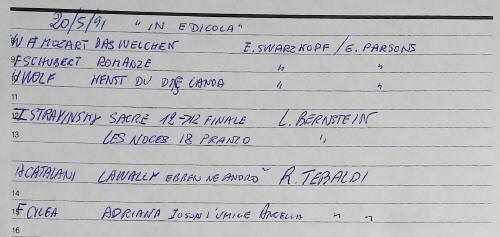 20/5/91 "IN EDICOLA"
W A MOZART DAS WELCHEN E. SWARZKOPF / G. PARSONS
9 F SCHUBERT ROMANZE " "
WOLF KENST DU DAS LANDA " "
11
I STRAVINSKY SACRE 12-712 FINALE L. BERNSTEIN
13 LES NOCES 18 PRANZO "
A CATALANI LAWALLY EBREN NE ANDRO' R. TEBALDI
14
15 F CILEA ADRIANA IOSONI'UMILE ANCELLA " "
16